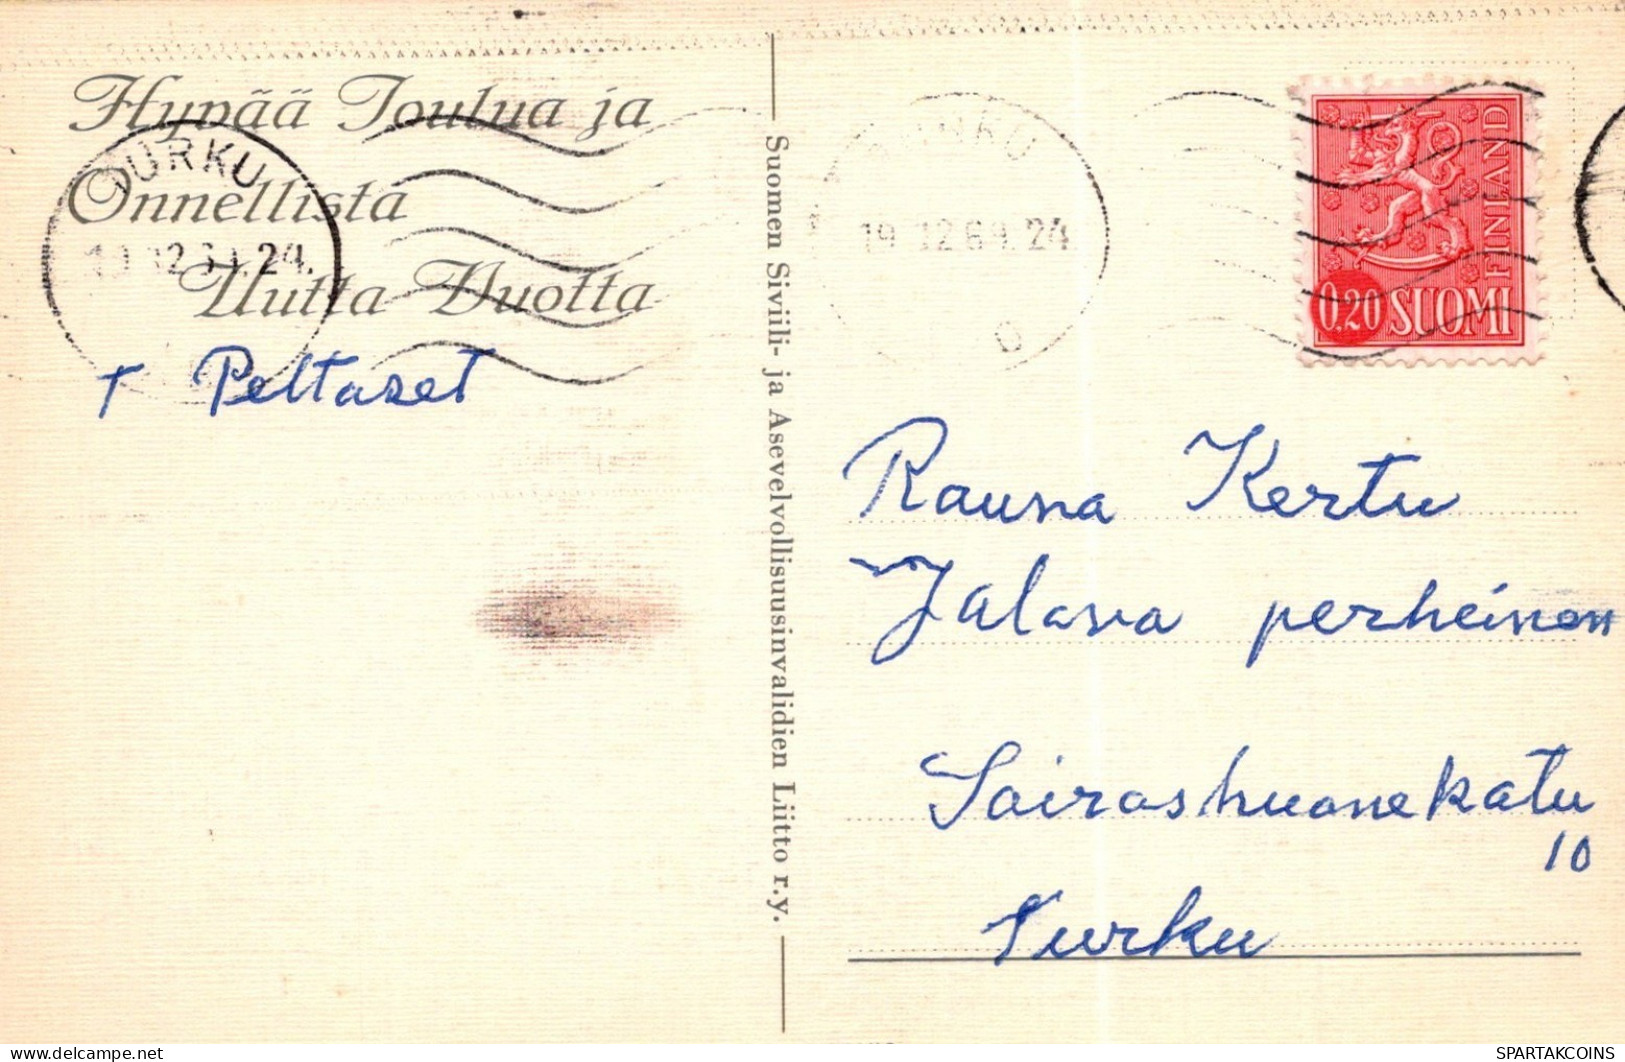 Hyvää Joulua ja
Onnellista
Uutta Vuotta
T Peltaset
TURKU
19.12.69.24.
Suomen Siviili- ja Asevelvollisuusinvalidien Liitto r.y.
TURKU
19.12.69.24.
D
FINLAND
0.20 SUOMI
Rauna Kertu
Jalava perheineen
Sairashuonekatu
10
Turku
SPARTAKCOINS
delcampe.net